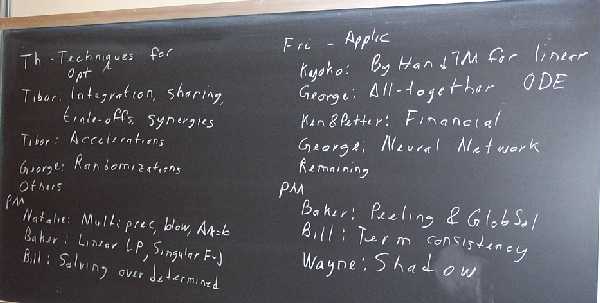 Th - Techniques for
Opt
Tibor: Integration, sharing,
trade-offs, synergies
Tibor: Accelerations
George: Randomizations
Others
PM
Natalie: Multiprec, blow,
Baker: Linear LP, Singular
Bill: Solving over determined
Fri - Applic
Kyoko: By Hand TM for linear ODE
George: All-together
Ken & Petter: Financial
George: Neural Network
Remaining
PM
Baker: Peeling & GlobSol
Bill: Term consistency
Wayne: Shadow